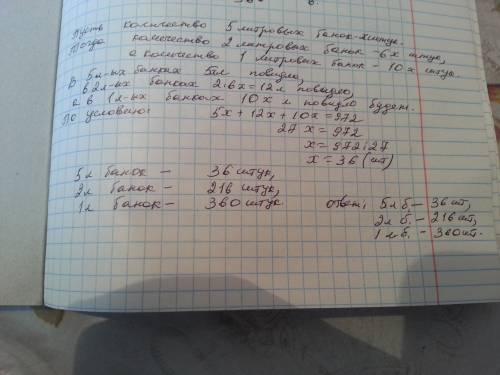 Пусть количество 5 литровых банок-x штук.
Тогда количество 2 литровых банок -6x штук,
а количество 1 литровых банок - 10x штук.
В 5л-ых банках 5xл повидло,
в 2л-ых банках 2·6x=12л повидло,
а в 1л-ых банках 10x л повидло будет.
По условию: 5x+12x+10x=972
27x=972
x=972:27
x=36 (шт)
5л банок - 36 штук,
2л банок - 216 штук,
1л банок - 360 штук
ответ: 5л б - 36 шт,
2л б. - 216 шт,
1л б. - 360 шт.